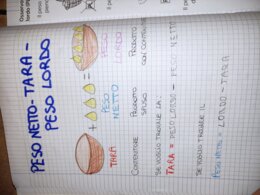 PESO NETTO - TARA -
PESO LORDO
TARA
PESO
NETTO
PESO
LORDO
CONTENITORE
PRODOTTO
SFUSO
PRODOTTO
CON CONTENITORE
SE VOGLIO TROVARE LA:
TARA = PESO LORDO - PESO NETTO
SE VOGLIO TROVARE IL
PESO NETTO = LORDO - TARA